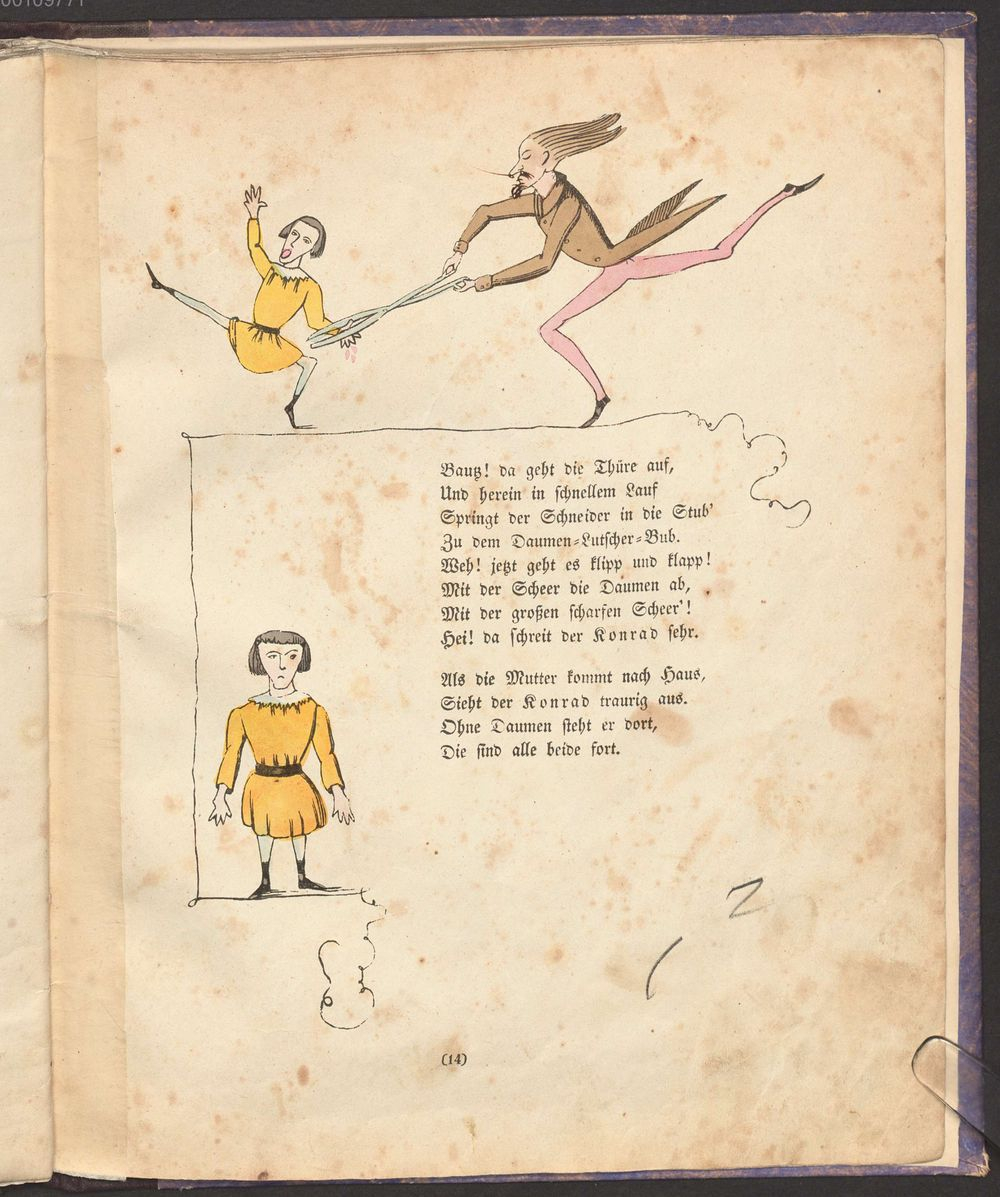 Bautz! da geht die Thüre auf,
Und herein in schnellem Lauf
Springt der Schneider in die Stub'
Zu dem Daumen-Lutscher-Bub.
Weh! jetzt geht es klipp und klapp!
Mit der Scheer die Daumen ab,
Mit der großen scharfen Scheer'!
Hei! da schreit der Konrad sehr.
Als die Mutter kommt nach Haus,
Sieht der Konrad traurig aus.
Ohne Daumen steht er dort,
Die sind alle beide fort.
(14)